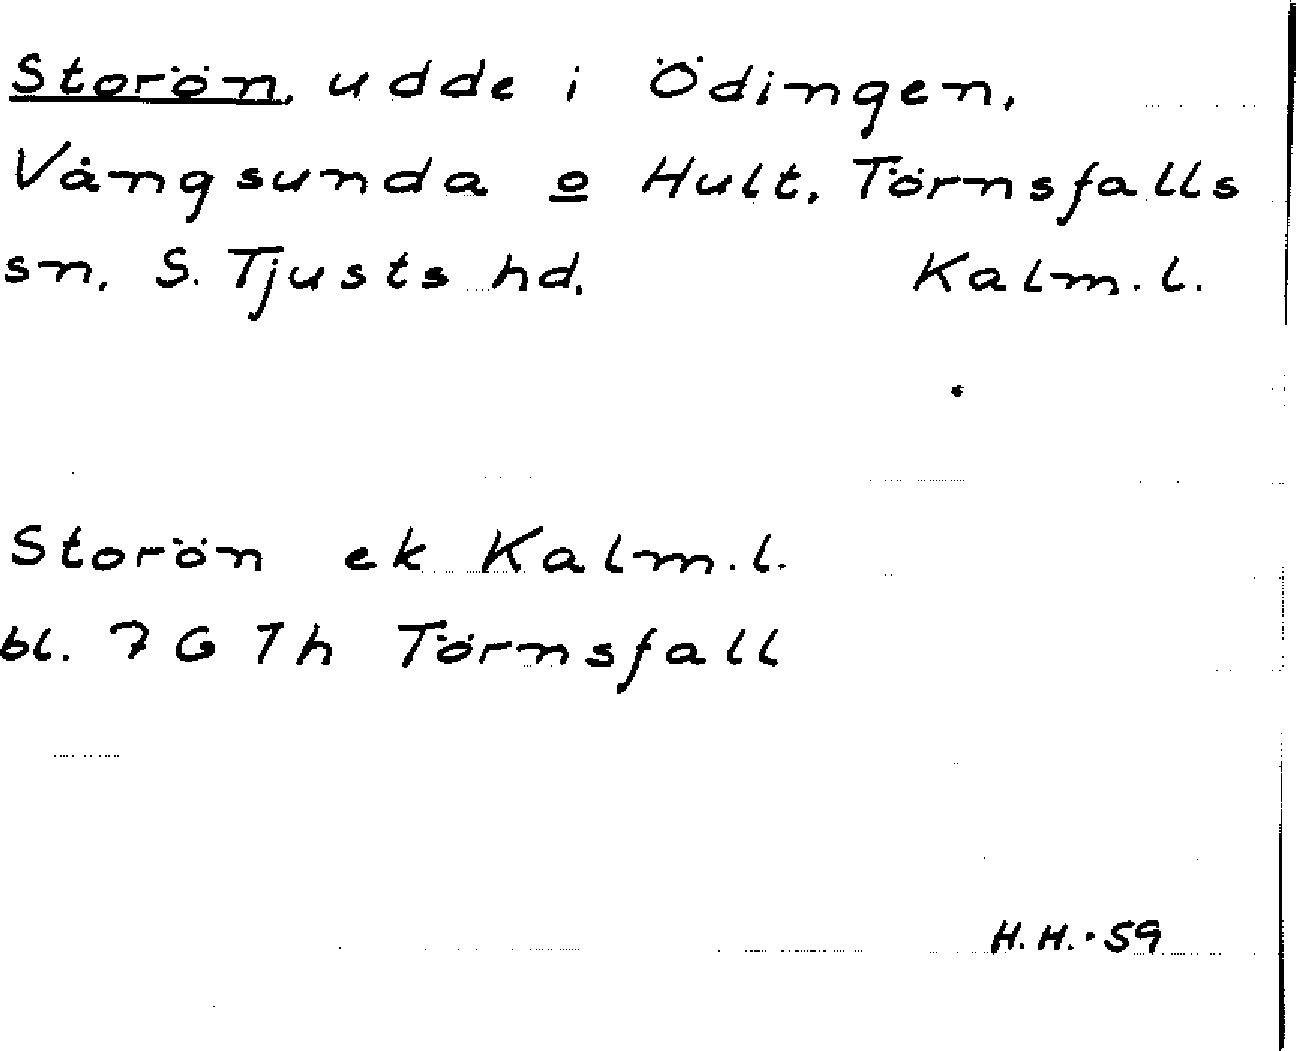 Storön, udde i Ödingen,
Vångsunda o Hult, Törnsfalls
sn. S. Tjusts hd. Kalm. l.
Storön ek Kalm. l.
bl. 7 G 7 h Törnsfall
H. H. · 59